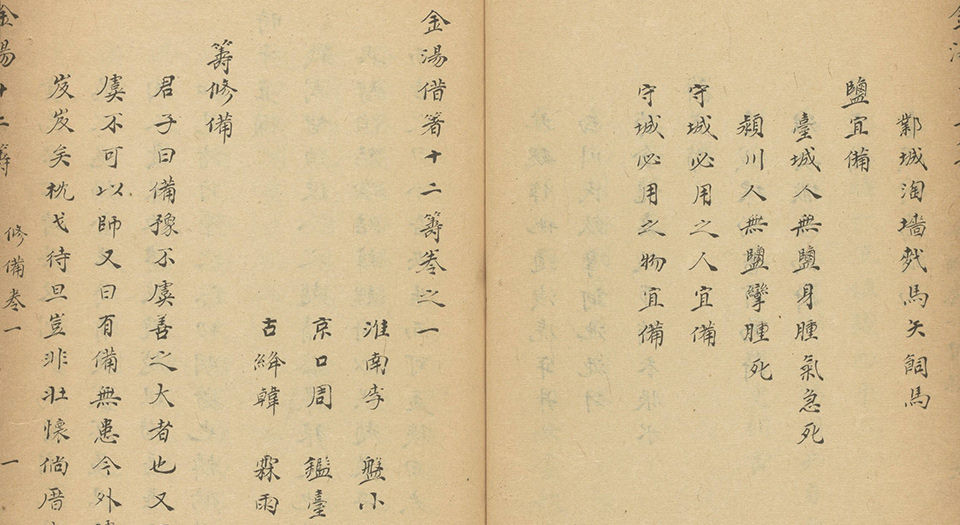 鄴城淘墻䴬馬矢飼馬
鹽宜備
臺城人無鹽身腫氣急死
潁川人無鹽攣腫死
守城必用之人宜備
守城必用之物宜備
金湯借箸十二籌卷之一
淮南李 盤小
京口周 鑑臺
古絳韓 霖雨
籌修備
君子曰備豫不虞善之大者也又
虞不可以師又曰有備無患今外
岌岌矣枕戈待旦豈非壯懷倘厝
金湯十二籌
修備卷一
一